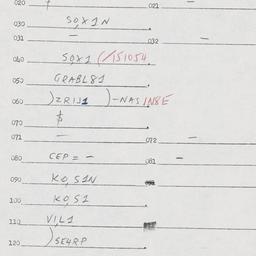 020 021
030 SO,X1N
031 — 032 —
040 SOX1 (/151054
050 GRABL81
060 )ZRIJ1 )-NASIN8E
070 $
071 — 072 —
080 CEP = - 081 -
090 KO,S1N
100 KO,S1
110 VIL1
120 )SE4RP